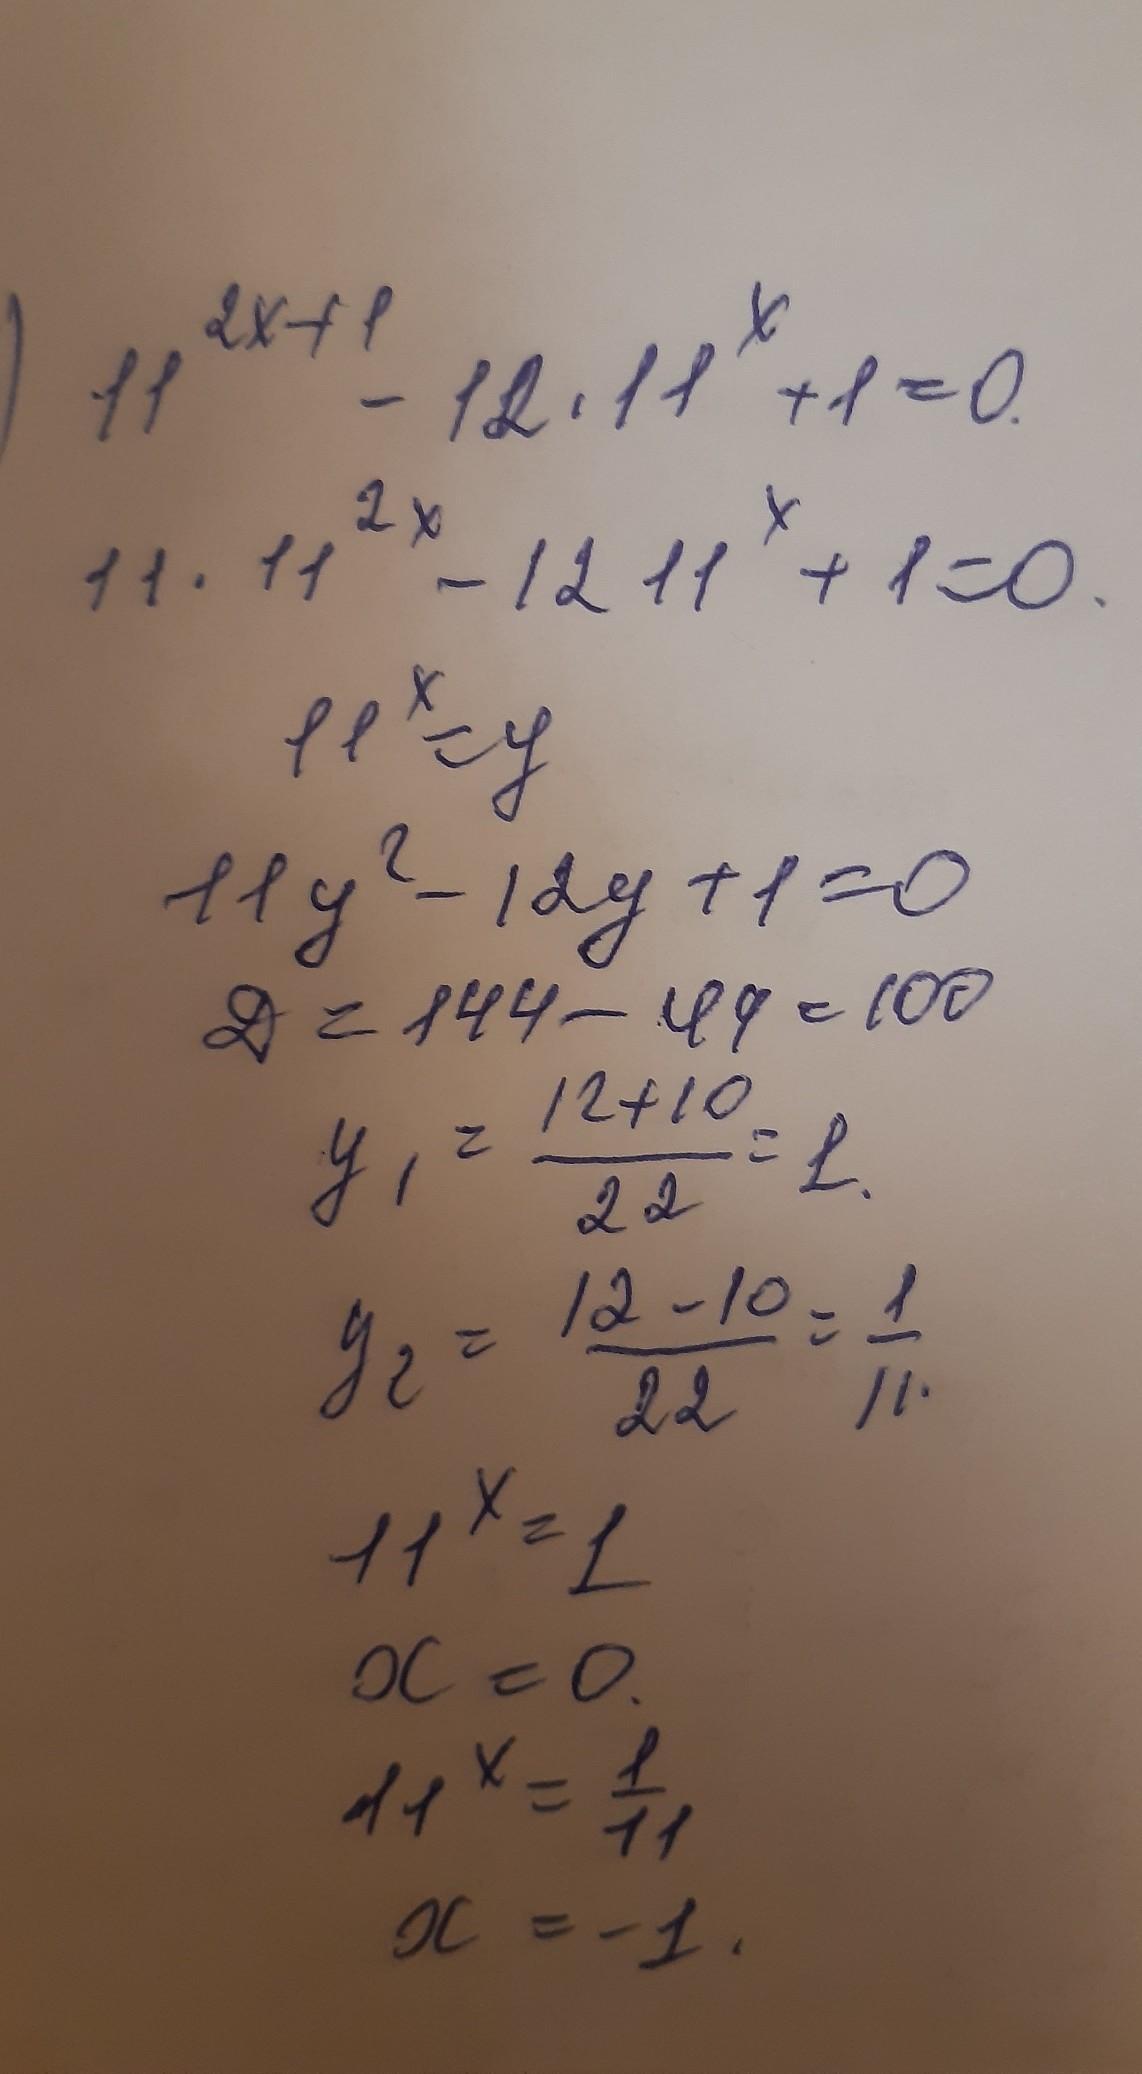 ) 11^{2x+1} - 12 · 11^x + 1 = 0.
11 · 11^{2x} - 12 11^x + 1 = 0.
11^x = y
11y² - 12y + 1 = 0
D = 144 - 44 = 100
y₁ = \frac{12+10}{22} = 1.
y₂ = \frac{12-10}{22} = \frac{1}{11}.
11^x = 1
x = 0.
11^x = \frac{1}{11}
x = -1.